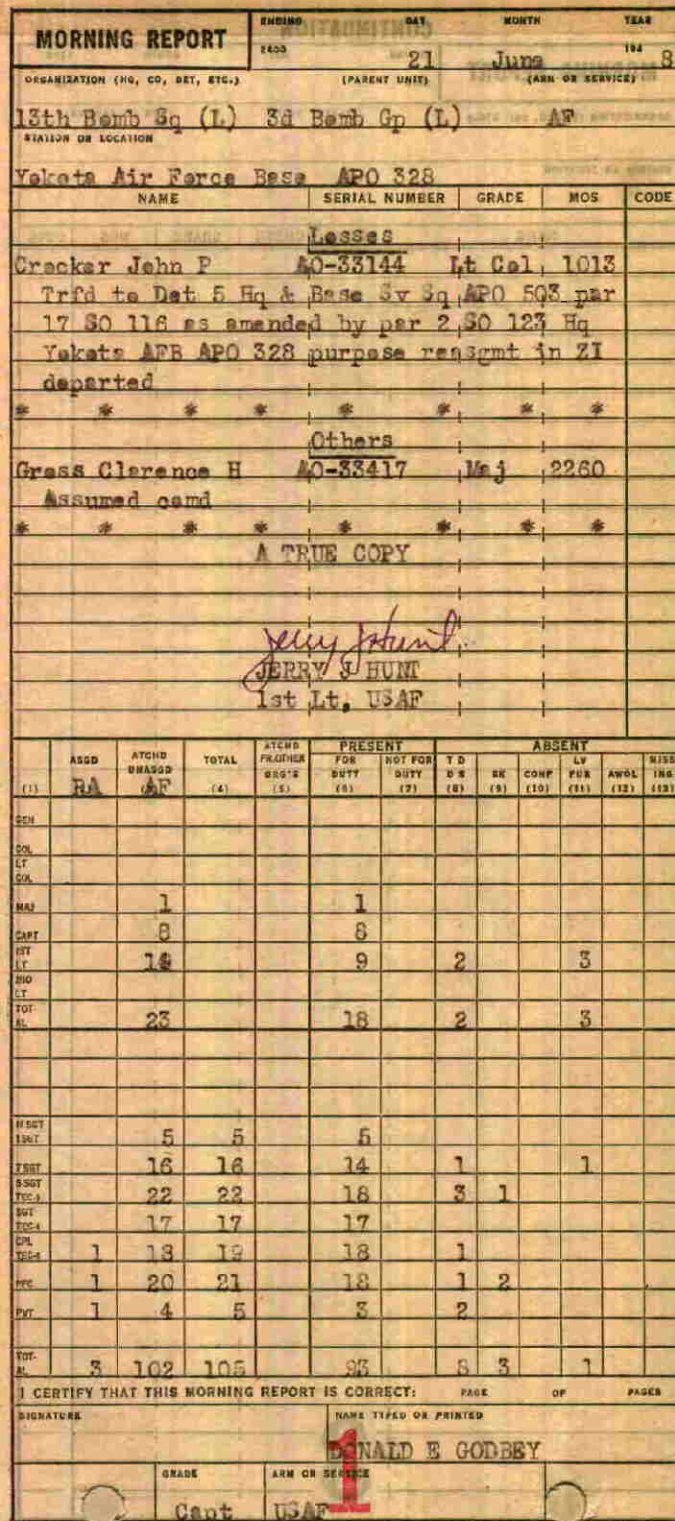 MORNING REPORT
ENDING DAY MONTH YEAR
2400 21 June 194 8
ORGANIZATION (HQ, CO, DET, ETC.) (PARENT UNIT) (ARM OR SERVICE)
13th Bomb Sq (L) 3d Bomb Gp (L) AF
STATION OR LOCATION
Yokota Air Force Base APO 328
NAME SERIAL NUMBER GRADE MOS CODE
Losses
Crocker John P AO-33144 Lt Col 1013
Trfd to Det 5 Hq & Base Sv Sq APO 503 par
17 SO 116 as amended by par 2 SO 123 Hq
Yokota AFB APO 328 purpose reasgmt in ZI
departed
* * * * * * * *
Others
Grass Clarence H AO-33417 Maj 2260
Assumed comd
* * * * * * * *
A TRUE COPY
Jerry J Hunt
JERRY J HUNT
1st Lt, USAF
PRESENT ABSENT
ASGD ATCHD UNASGD TOTAL ATCHD FR.OTHER ORG'S FOR DUTY NOT FOR DUTY T D D S SK CONF LV FUR AWOL MISS ING
(1) RA AF (4) (5) (6) (7) (8) (9) (10) (11) (12) (13)
GEN
COL
LT COL
MAJ 1 1
CAPT 8 8
1ST LT 14 9 2 3
2ND LT
TOTAL 23 18 2 3
M SGT 1SGT 5 5 5
TSGT 16 16 14 1 1
SSGT TEC-3 22 22 18 3 1
SGT TEC-4 17 17 17
CPL TEC-5 1 18 19 18 1
PFC 1 20 21 18 1 2
PVT 1 4 5 3 2
TOTAL 3 102 105 93 8 3 1
I CERTIFY THAT THIS MORNING REPORT IS CORRECT: PAGE OF PAGES
SIGNATURE NAME TYPED OR PRINTED
DONALD E GODBEY
GRADE ARM OR SERVICE
Capt USAF
1